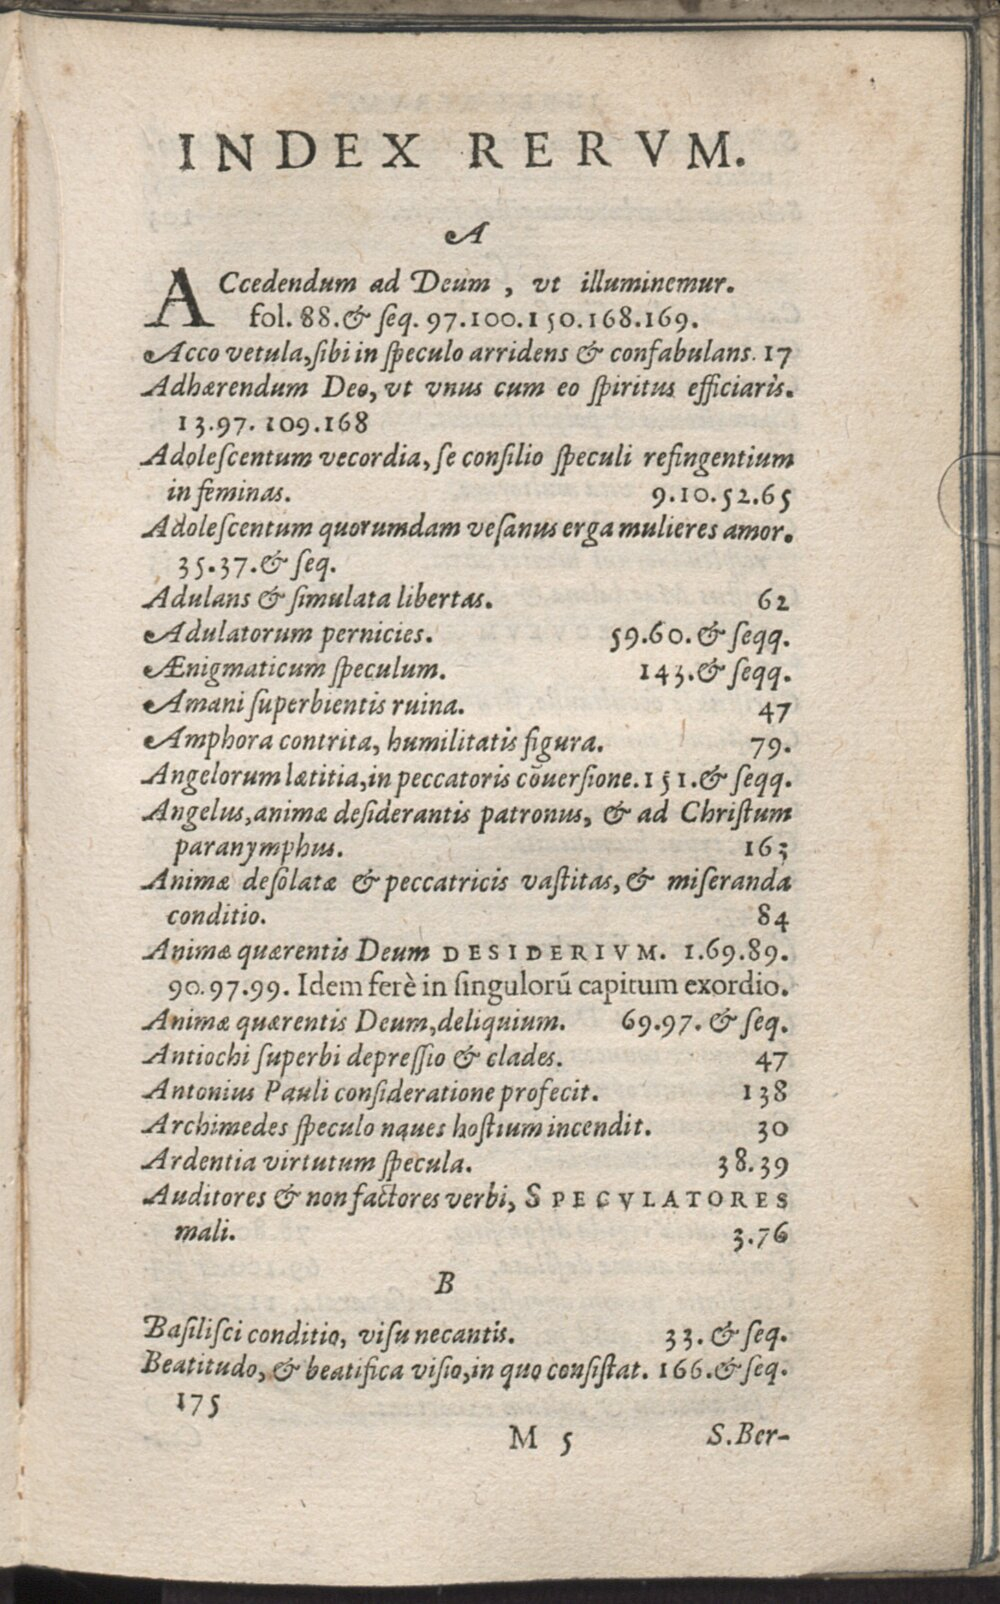 INDEX RERVM.
A
ACcedendum ad Deum, vt illuminemur.
fol. 88. & ſeq. 97.100.150.168.169.
Acco vetula, ſibi in ſpeculo arridens & confabulans. 17
Adhærendum Deo, vt vnus cum eo ſpiritus efficiaris.
13.97. 109.168
Adoleſcentum vecordia, ſe conſilio ſpeculi refingentium
in feminas. 9.10.52.65
Adoleſcentum quorumdam veſanus erga mulieres amor.
35.37. & ſeq.
Adulans & ſimulata libertas. 62
Adulatorum pernicies. 59.60. & ſeqq.
Ænigmaticum ſpeculum. 143. & ſeqq.
Amani ſuperbientis ruina. 47
Amphora contrita, humilitatis figura. 79.
Angelorum lætitia, in peccatoris cōuerſione. 151. & ſeqq.
Angelus, animæ deſiderantis patronus, & ad Chriſtum
paranymphus. 163
Animæ deſolatæ & peccatricis vaſtitas, & miſeranda
conditio. 84
Animæ quærentis Deum DESIDERIVM. 1.69.89.
90.97.99. Idem ferè in ſingulorū capitum exordio.
Animæ quærentis Deum, deliquium. 69.97. & ſeq.
Antiochi ſuperbi depreſſio & clades. 47
Antonius Pauli conſideratione profecit. 138
Archimedes ſpeculo naues hoſtium incendit. 30
Ardentia virtutum ſpecula. 38.39
Auditores & non factores verbi, SPECVLATORES
mali. 3.76
B
Baſiliſci conditio, viſu necantis. 33. & ſeq.
Beatitudo, & beatifica viſio, in quo conſiſtat. 166. & ſeq.
175
M 5 S. Ber-